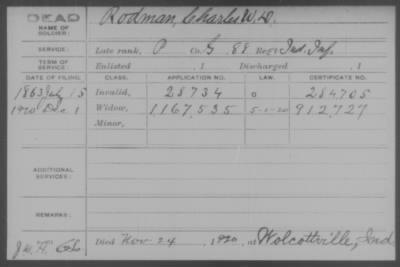 DEAD
NAME OF SOLDIER: Rodman, Charles W. D.
SERVICE: Late rank, P Co. G 88 Reg't Ind. Inf.
TERM OF SERVICE: Enlisted , 1 Discharged , 1
DATE OF FILING. CLASS. APPLICATION NO. LAW. CERTIFICATE NO.
1863 July 15 Invalid, 28734 o 284705
1920 Dec 1 Widow, 1,167,535 5-1-20 912,727
Minor,
ADDITIONAL SERVICES:
REMARKS:
Died Nov. 24, 1920, at Wolcottville, Ind.